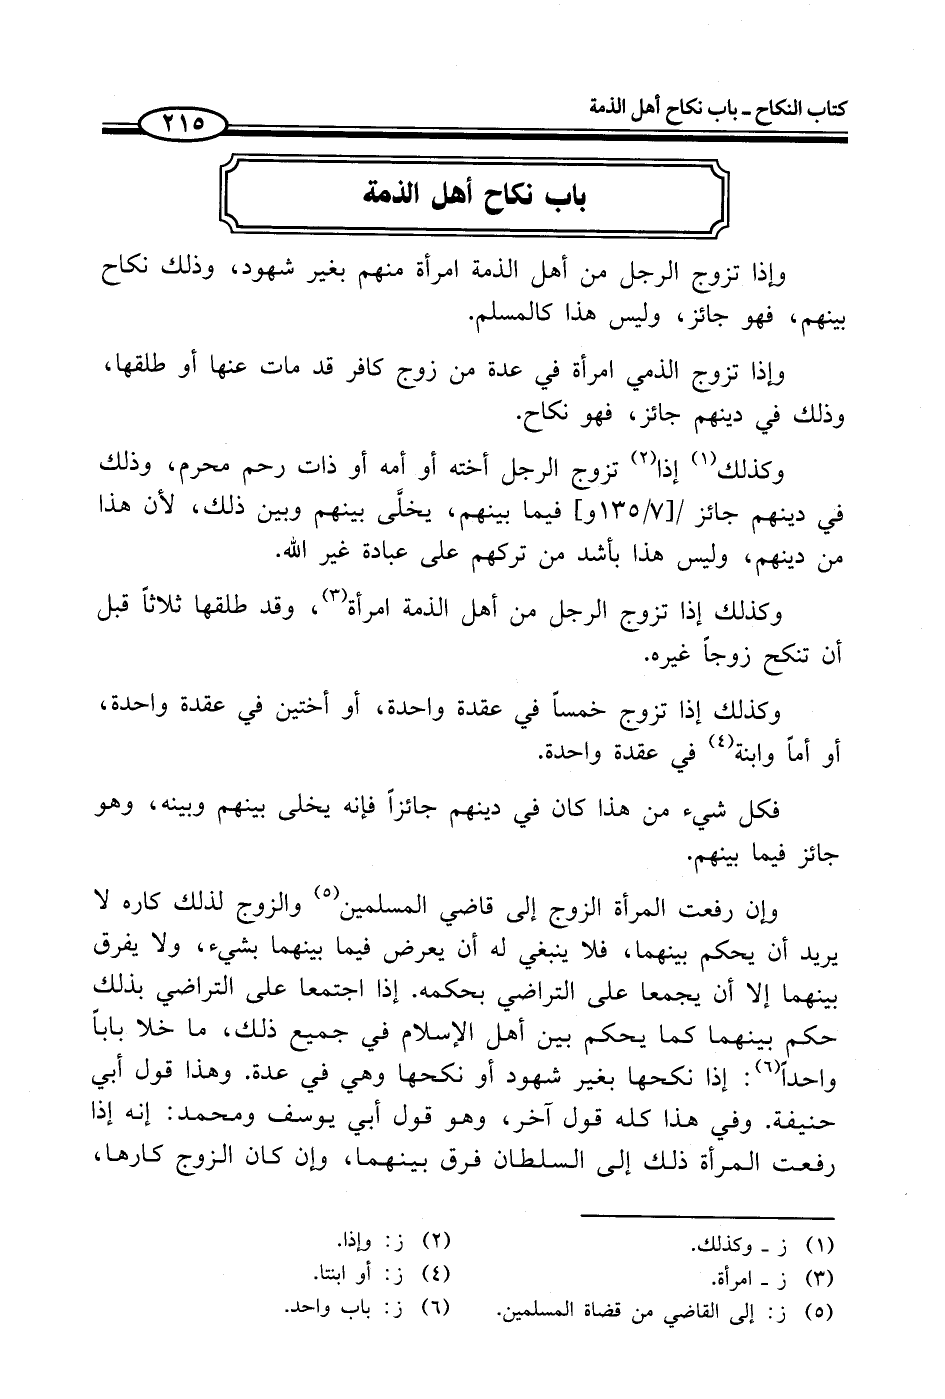 كتاب النكاح ـ باب نكاح أهل الذمة
٢١٥
باب نكاح أهل الذمة
وإذا تزوج الرجل من أهل الذمة امرأة منهم بغير شهود، وذلك نكاح
بينهم، فهو جائز، وليس هذا كالمسلم.
وإذا تزوج الذمي امرأة في عدة من زوج كافر قد مات عنها أو طلقها،
وذلك في دينهم جائز، فهو نكاح.
وكذلك(١) إذا(٢) تزوج الرجل أخته أو أمه أو ذات رحم محرم، وذلك
في دينهم جائز /[١٣٥/٧و] فيما بينهم، يخلَّى بينهم وبين ذلك، لأن هذا
من دينهم، وليس هذا بأشد من تركهم على عبادة غير الله.
وكذلك إذا تزوج الرجل من أهل الذمة امرأة(٣)، وقد طلقها ثلاثاً قبل
أن تنكح زوجاً غيره.
وكذلك إذا تزوج خمساً في عقدة واحدة، أو أختين في عقدة واحدة،
أو أماً وابنة(٤) في عقدة واحدة.
فكل شيء من هذا كان في دينهم جائزاً فإنه يخلى بينهم وبينه، وهو
جائز فيما بينهم.
وإن رفعت المرأة الزوج إلى قاضي المسلمين(٥) والزوج لذلك كاره لا
يريد أن يحكم بينهما، فلا ينبغي له أن يعرض فيما بينهما بشيء، ولا يفرق
بينهما إلا أن يجمعا على التراضي بحكمه. إذا اجتمعا على التراضي بذلك
حكم بينهما كما يحكم بين أهل الإسلام في جميع ذلك، ما خلا باباً
واحداً(٦): إذا نكحها بغير شهود أو نكحها وهي في عدة. وهذا قول أبي
حنيفة. وفي هذا كله قول آخر، وهو قول أبي يوسف ومحمد: إنه إذا
رفعت المرأة ذلك إلى السلطان فرق بينهما، وإن كان الزوج كارها،
(١) ز ـ وكذلك.
(٢) ز: وإذا.
(٣) ز ـ امرأة.
(٤) ز: أو ابنتا.
(٥) ز: إلى القاضي من قضاة المسلمين.
(٦) ز: باب واحد.